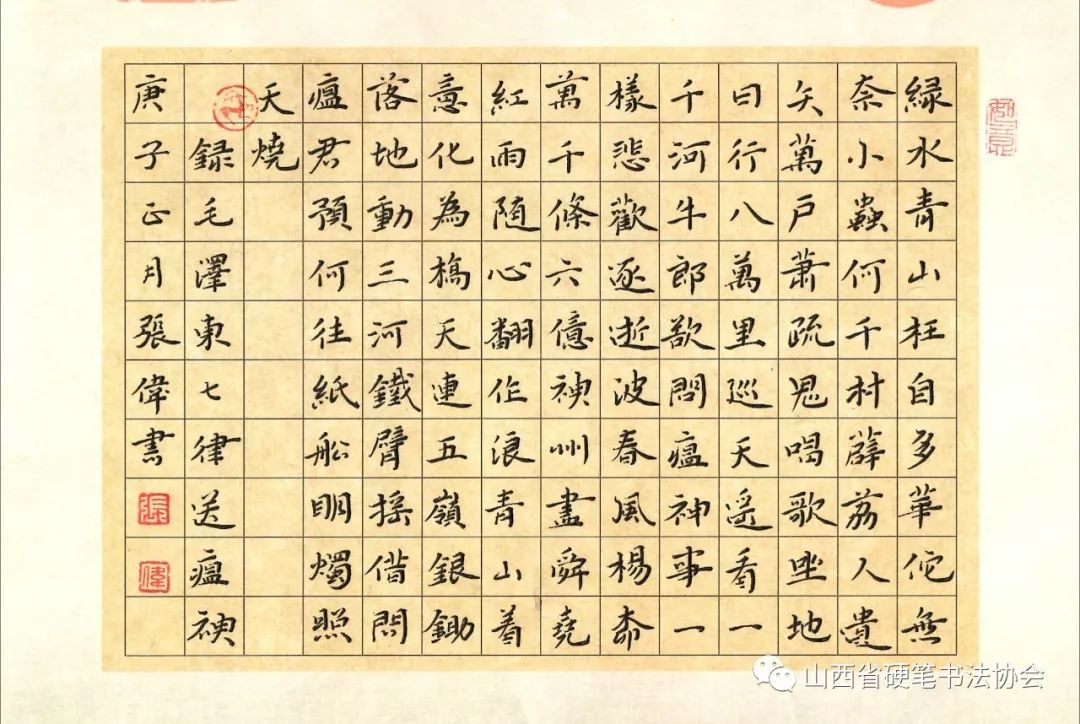 緑水青山枉自多華佗無
奈小蟲何千村薜荔人遺
矢萬戶蕭疏鬼唱歌坐地
日行八萬里巡天遙看一
千河牛郎欲問瘟神事一
樣悲歡逐逝波春風楊柳
萬千條六億神州盡舜堯
紅雨随心翻作浪青山着
意化為橋天連五嶺銀鋤
落地動三河鐵臂搖借問
瘟君預何往紙船明燭照
天燒
録毛澤東七律送瘟神
庚子正月張偉書
張
偉
山西省硬笔书法协会